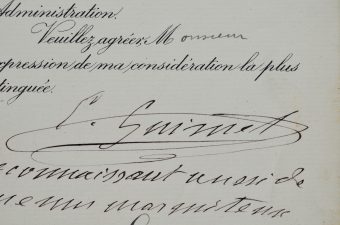 Administration.
Veuillez agréer, Monsieur
pression de ma considération la plus
tinguée.
E. Guimet
connaissant aussi de